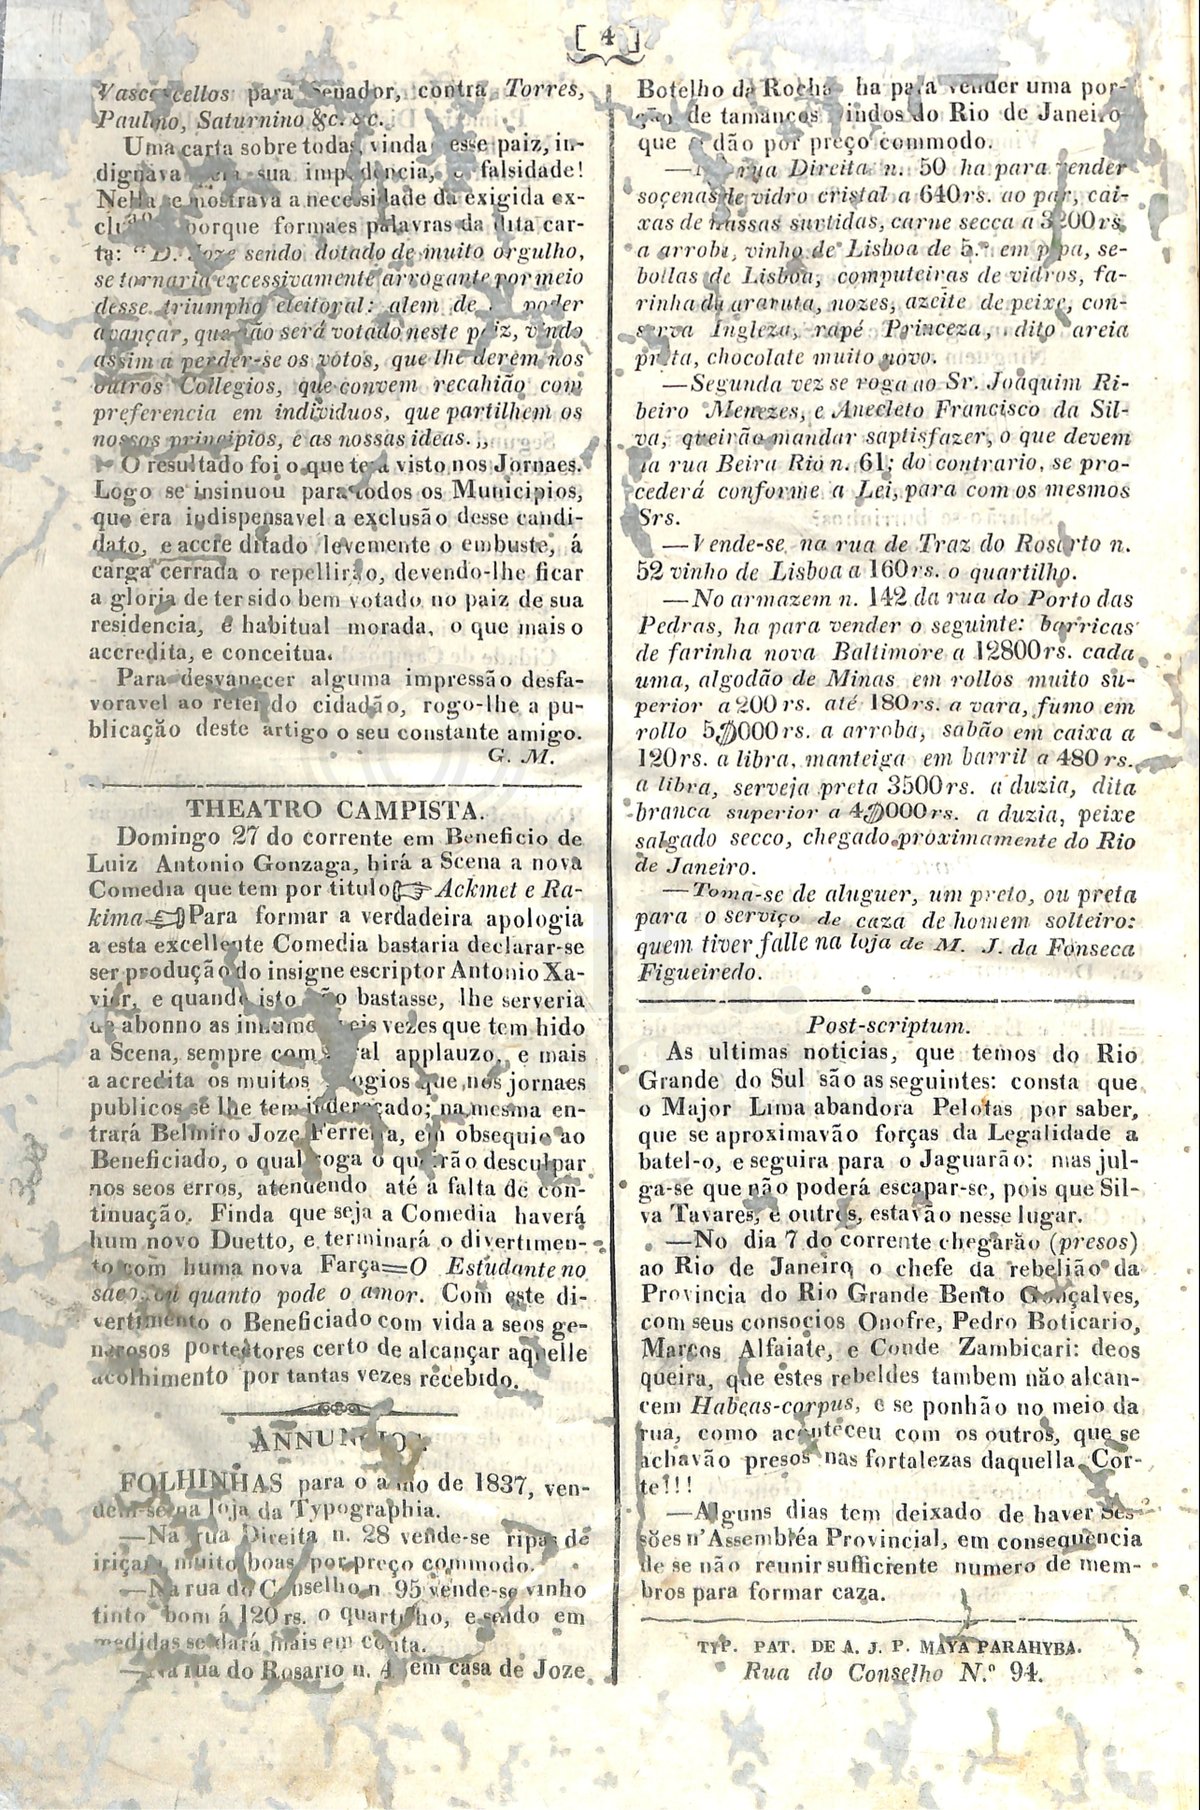 [ 4 ]
para Senador, contra Torres,
Paulino, Saturnino &c. &c.
Uma carta sobre todas, vinda esse paiz, in-
dignava sua impudencia, e falsidade!
Nella se mostrava a necessidade da exigida ex-
porque formaes palavras da dita car-
ta: " D. Joze sendo dotado de muito orgulho,
se tornaria excessivamente arrogante por meio
desse triumpho eleitoral: alem de poder
avançar, que não será votado neste paiz, vindo
assim a perder-se os votos, que lhe derem nos
outros Collegios, que convem recahião com
preferencia em individuos, que partilhem os
nossos principios, e as nossas ideas.,,
O resultado foi o que terá visto nos Jornaes.
Logo se insinuou para todos os Municipios,
que era indispensavel a exclusão desse candi-
dato, e accreditado levemente o embuste, á
carga cerrada o repellirão, devendo-lhe ficar
a gloria de ter sido bem votado no paiz de sua
residencia, e habitual morada, o que mais o
accredita, e conceitua.
Para desvanecer alguma impressão desfa-
voravel ao referido cidadão, rogo-lhe a pu-
blicação deste artigo o seu constante amigo.
G. M.
THEATRO CAMPISTA.
Domingo 27 do corrente em Beneficio de
Luiz Antonio Gonzaga, hirá a Scena a nova
Comedia que tem por titulo☞Ackmet e Ra-
kima☜Para formar a verdadeira apologia
a esta excellente Comedia bastaria declarar-se
ser produção do insigne escriptor Antonio Xa-
vier, e quando isto não bastasse, lhe serveria
de abonno as innumeraveis vezes que tem hido
a Scena, sempre com geral applauzo, e mais
a acredita os muitos elogios que nos jornaes
publicos se lhe tem indereçado; na mesma en-
trará Belmiro Joze Ferreira, em obsequio ao
Beneficiado, o qual roga o queirão desculpar
nos seos erros, atendendo até a falta de con-
tinuação. Finda que seja a Comedia haverá
hum novo Duetto, e terminará o divertimen-
to com huma nova Farça=O Estudante no
saco, ou quanto pode o amor. Com este di-
vertimento o Beneficiado com vida a seos ge-
nerosos portectores certo de alcançar aquelle
acolhimento por tantas vezes recebido.
ANNUNCIOS.
FOLHINHAS para o anno de 1837, ven-
dem-se na loja da Typographia.
—Na rua Direita n. 28 vende-se ripas de
iriçara muito boas por preço commodo.
—Na rua do Conselho n. 95 vende-se vinho
tinto bom á 120 rs. o quartilho, e sendo em
medidas se dará mais em conta.
—Na rua do Rosario n. 4 em casa de Joze
Botelho da Rocha ha para vender uma por-
ção de tamancos vindos do Rio de Janeiro
que dão por preço commodo.
— rua Direita n. 50 ha para vender
soçenas de vidro cristal a 640rs. ao par, cai-
xas de massas surtidas, carne secca a 3200 rs.
a arroba, vinho de Lisboa de 5.ª em pipa, se-
bollas de Lisboa, computeiras de vidros, fa-
rinha da araruta, nozes, azeite de peixe, con-
serva Ingleza, rapé Princeza, dito areia
preta, chocolate muito novo.
—Segunda vez se roga ao Sr. Joaquim Ri-
beiro Menezes, e Anecleto Francisco da Sil-
va, queirão mandar saptisfazer, o que devem
na rua Beira Rio n. 61; do contrario, se pro-
cederá conforme a Lei, para com os mesmos
Srs.
—Vende-se na rua de Traz do Rosario n.
52 vinho de Lisboa a 160rs. o quartilho.
—No armazem n. 142 da rua do Porto das
Pedras, ha para vender o seguinte: barricas
de farinha nova Baltimore a 12800rs. cada
uma, algodão de Minas em rollos muito su-
perior a 200 rs. até 180rs. a vara, fumo em
rollo 5$000rs. a arroba, sabão em caixa a
120rs. a libra, manteiga em barril a 480 rs.
a libra, serveja preta 3500rs. a duzia, dita
branca superior a 4$000rs. a duzia, peixe
salgado secco, chegado proximamente do Rio
de Janeiro.
—Toma-se de aluguer, um preto, ou preta
para o serviço de caza de homem solteiro:
quem tiver falle na loja de M. J. da Fonseca
Figueiredo.
Post-scriptum.
As ultimas noticias, que temos do Rio
Grande do Sul são as seguintes: consta que
o Major Lima abandora Pelotas por saber,
que se aproximavão forças da Legalidade a
batel-o, e seguira para o Jaguarão: mas jul-
ga-se que não poderá escapar-se, pois que Sil-
va Tavares, e outros, estavão nesse lugar.
—No dia 7 do corrente chegarão (presos)
ao Rio de Janeiro o chefe da rebelião da
Provincia do Rio Grande Bento Gonçalves,
com seus consocios Onofre, Pedro Boticario,
Marcos Alfaiate, e Conde Zambicari: deos
queira, que estes rebeldes tambem não alcan-
cem Habeas-corpus, e se ponhão no meio da
rua, como aconteceu com os outros, que se
achavão presos nas fortalezas daquella Cor-
te!!!
—Alguns dias tem deixado de haver Ses-
sões n'Assembléa Provincial, em consequencia
de se não reunir sufficiente numero de mem-
bros para formar caza.
TYP. PAT. DE A. J. P. MAYA PARAHYBA.
Rua do Conselho N.º 94.